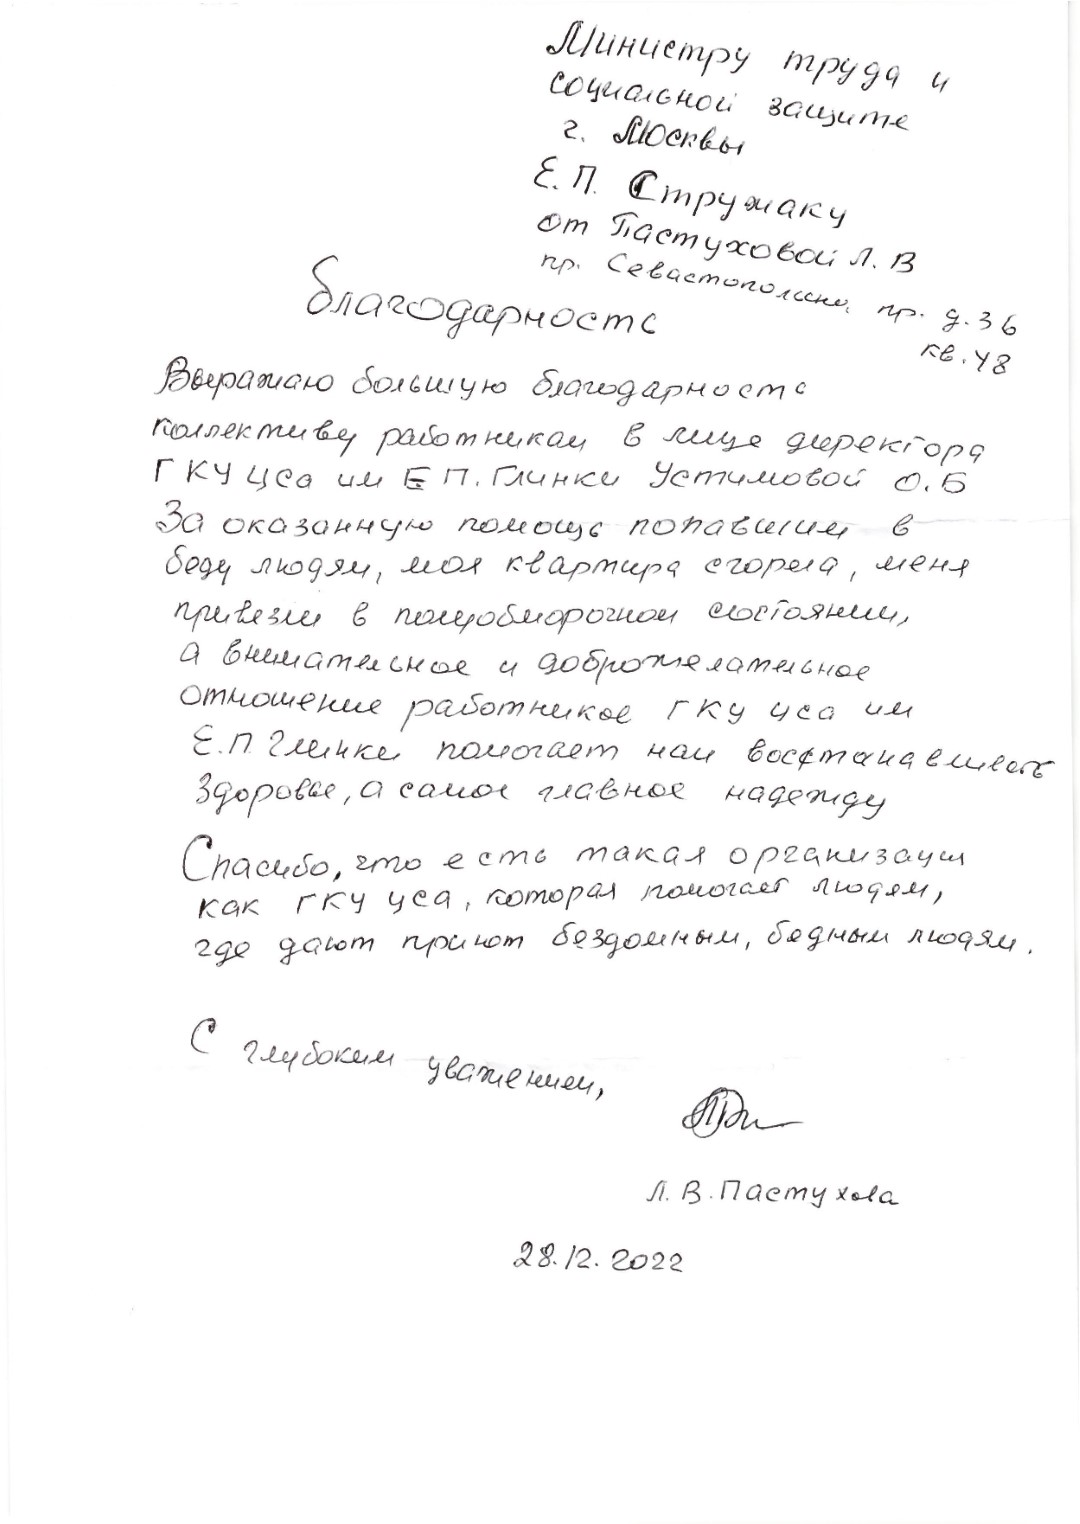 Министру труда и
социальной защите
г. Москвы
Е. П. Стружаку
от Пастуховой Л. В
пр. Севастопольский, пр. д. 36
кв. 48
благодарность
Выражаю большую благодарность
коллективу работникам в лице директора
ГКУ ЦСА им Е П. Глинки Устимовой О. Б
За оказанную помощь попавшим в
беду людям, моя квартира сгорела, меня
привезли в полуобморочном состоянии,
а внимательное и доброжелательное
отношение работников ГКУ ЦСА им
Е.П Глинки помогает нам восстанавливать
здоровье, а самое главное надежду
Спасибо, что есть такая организация
как ГКУ ЦСА, которая помогает людям,
где дают приют бездомным, бедным людям.
С глубоким уважением,
Л. В. Пастухова
28.12.2022